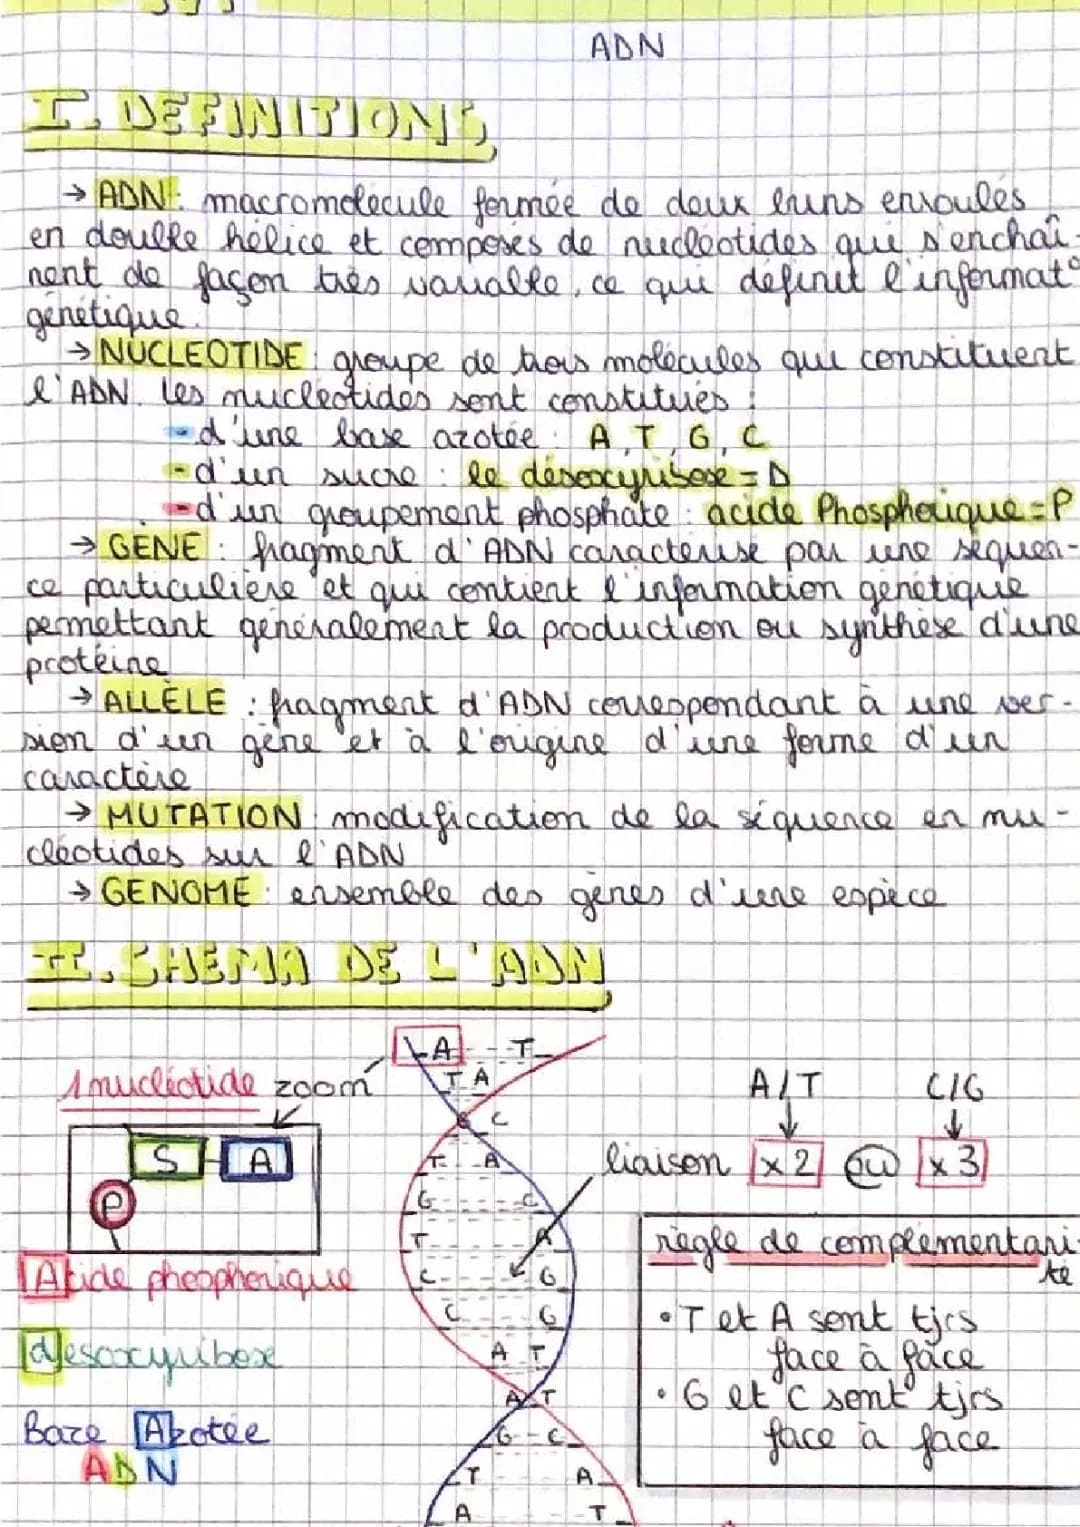 ADN
I. DEFINITIONS
→ ADN : macromolécule formée de deux bruns enroulés
en double hélice et composés de nucléotides qui s'enchaî-
nent de façon très variable, ce qui définit l'informat°
génétique.
→ NUCLEOTIDE : groupe de trois molécules qui constituent
l'ADN. les nucléotides sont constitués :
- d'une base azotée : A, T, G, C
- d'un sucre : le désoxyribose = D
- d'un groupement phosphate : acide Phosphorique = P
→ GENE : fragment d'ADN caractérisé par une séquen-
ce particulière et qui contient l'information génétique
permettant généralement la production ou synthèse d'une
protéine
→ ALLÈLE : fragment d'ADN correspondant à une ver-
sion d'un gène et à l'origine d'une forme d'un
caractère
→ MUTATION : modification de la séquence en nu-
cléotides sur l'ADN
→ GENOME : ensemble des gènes d'une espèce
II. SHEMA DE L'ADN
1 nucléotide zoom
S A
P
Acide phosphorique
desoxyribose
Baze Azotée
ADN
A T
T A
C
T A
G C
T A
C G
C G
A T
A T
G C
T A
A T
A/T C/G
liaison x2 ou x3
règle de complémentari-
té
• T et A sont tjrs
face à face
• G et C sont tjrs
face à face